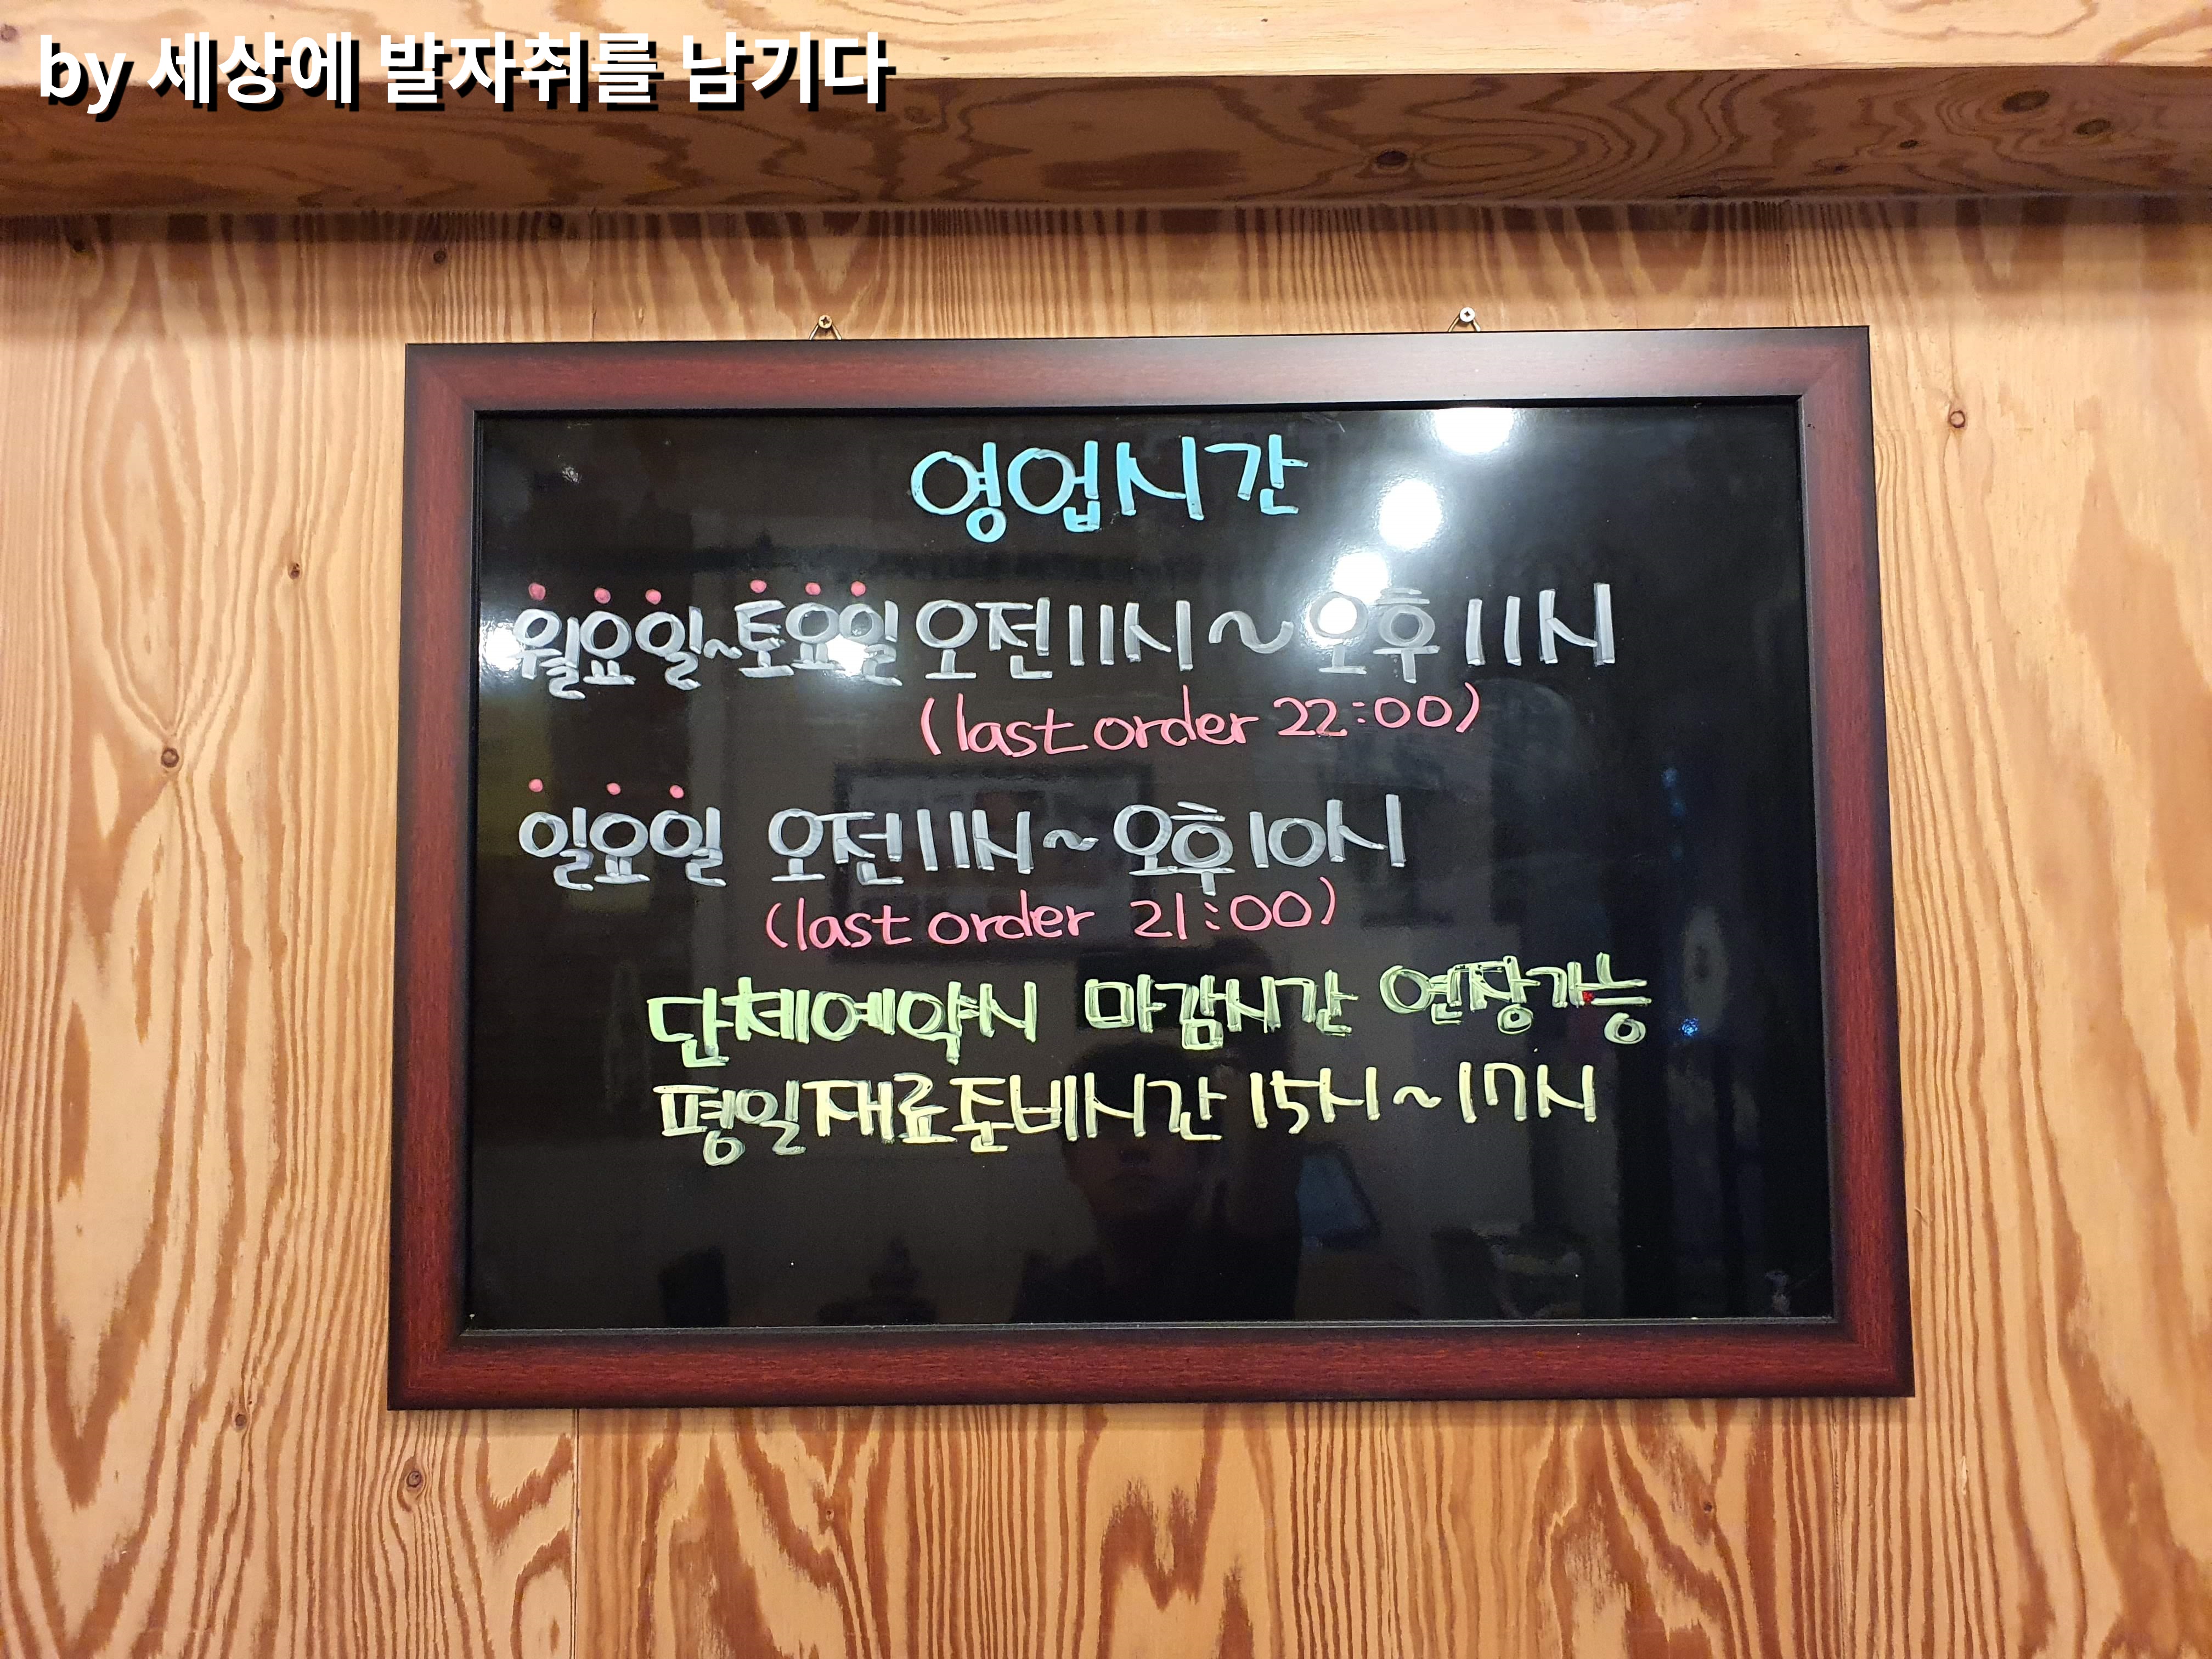 by 세상에 발자취를 남기다
영업시간
월요일~토요일 오전11시~오후11시
(last order 22:00)
일요일 오전11시~오후10시
(last order 21:00)
단체예약시 마감시간 연장가능
평일재료준비시간 15시~17시